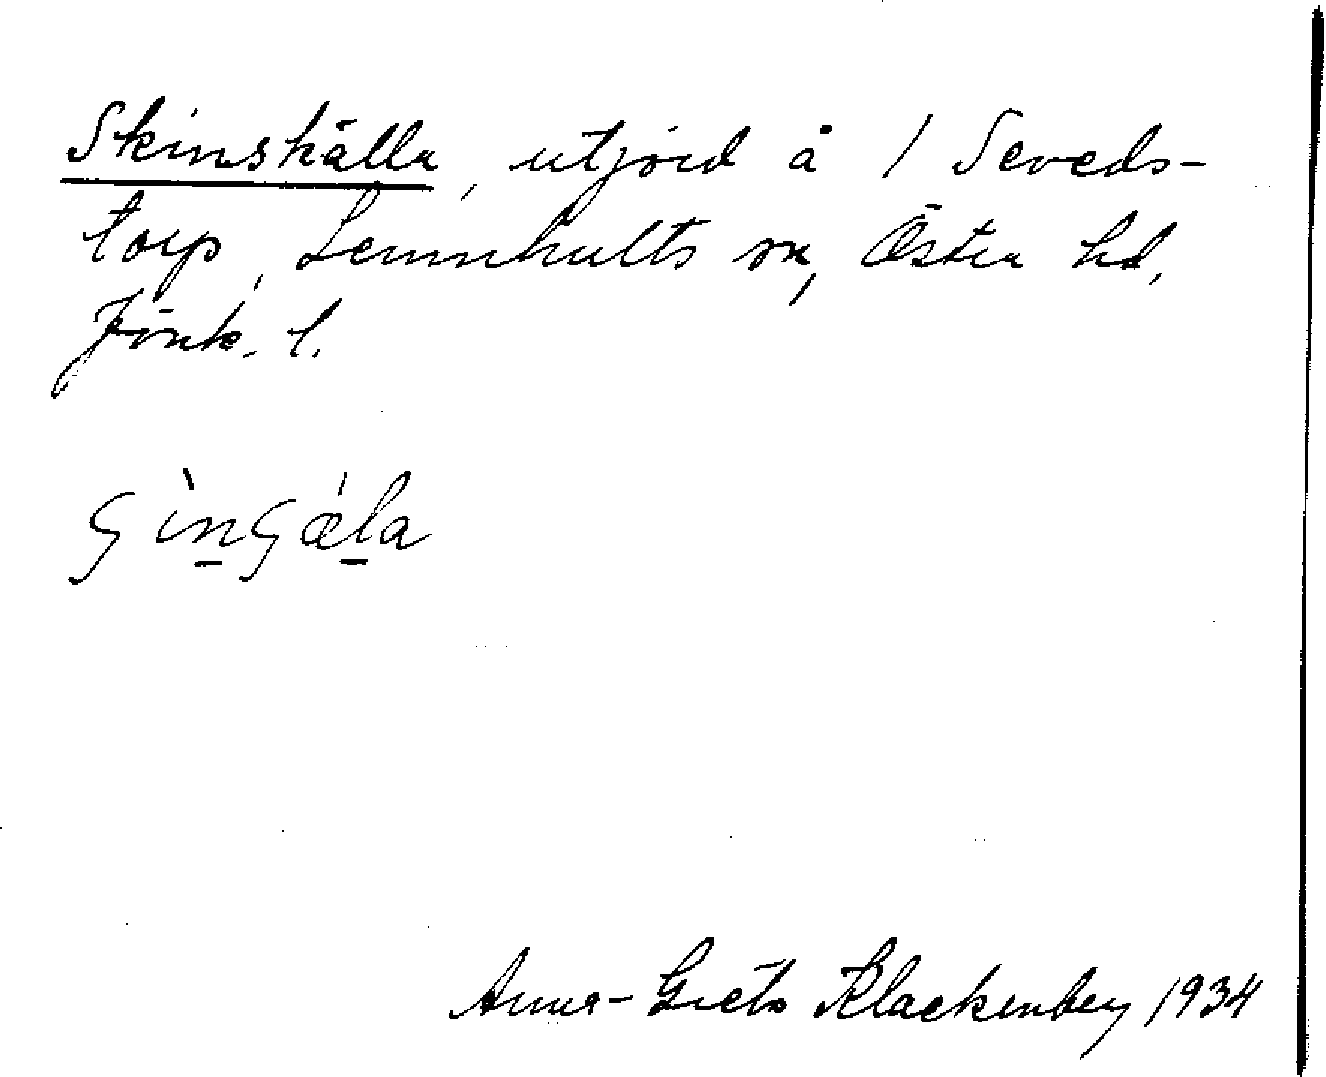 Skinskälla, utjord å 1 Seveds-
torp, Lemnhults sn, Östra hd,
Jönk. l.
ʂìn̲ʂǽl̲a
Anna-Greta Klackenberg 1934